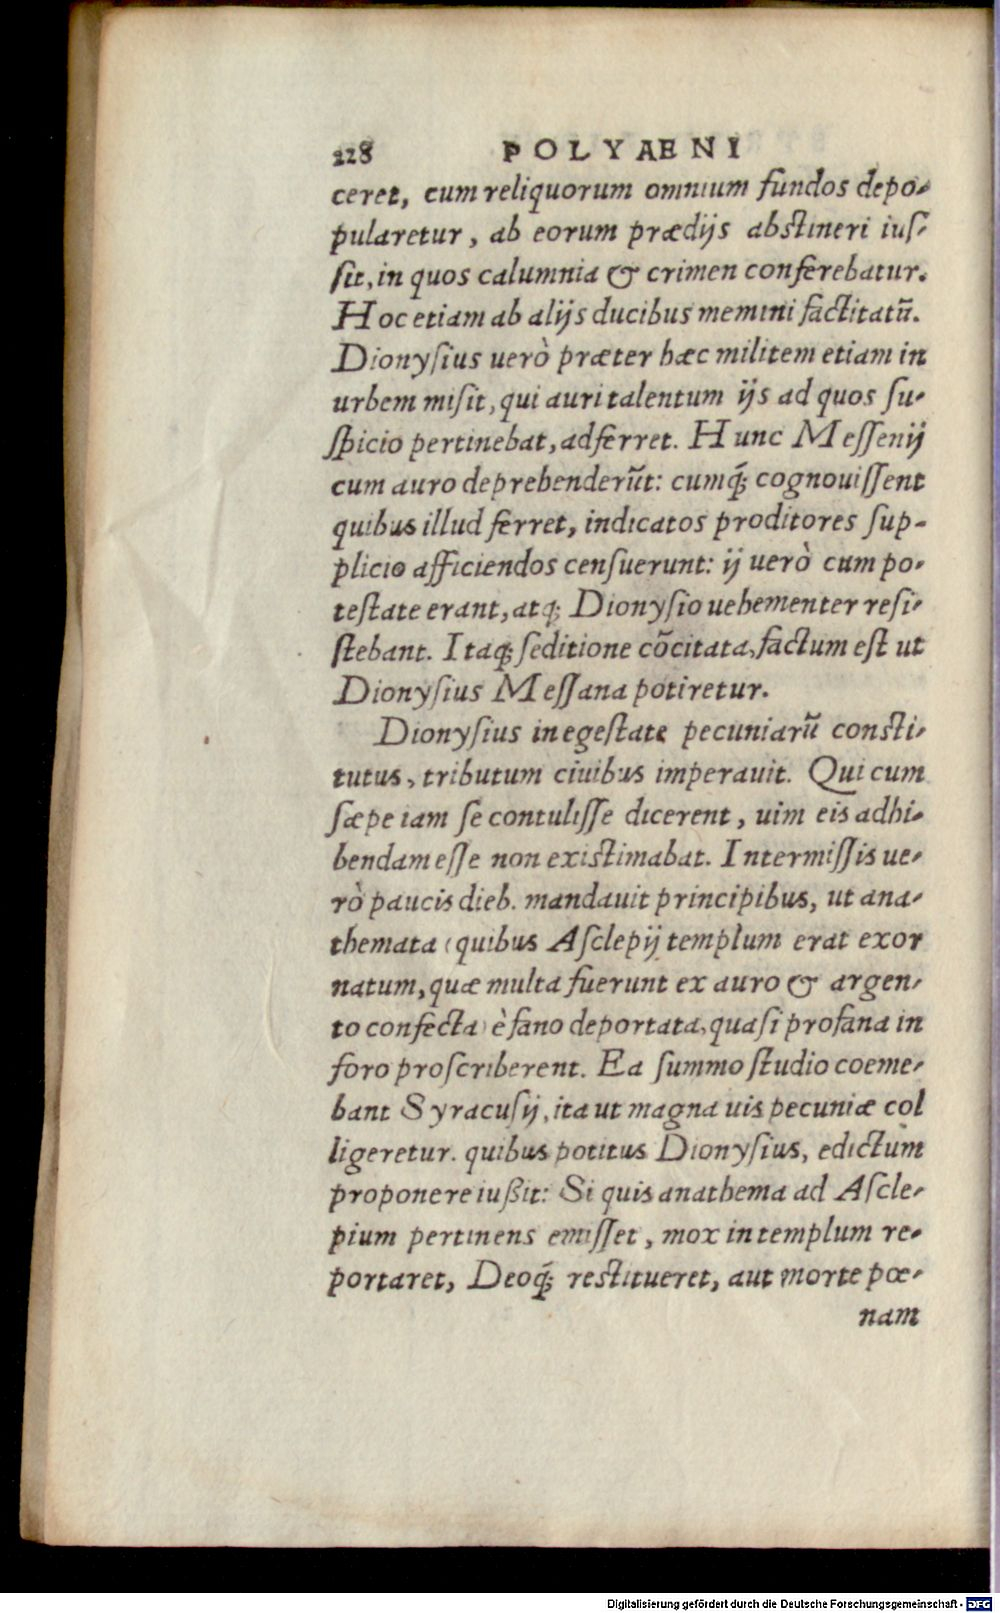 228 POLYAENI
ceret, cum reliquorum omnium fundos depo-
pularetur, ab eorum prædijs abstineri iuſ-
ſit, in quos calumnia & crimen conferebatur.
Hoc etiam ab alijs ducibus memini factitatū.
Dionyſius uerò præter hæc militem etiam in
urbem miſit, qui auri talentum ijs ad quos ſu-
ſpicio pertinebat, adferret. Hunc Meſſenij
cum auro deprehenderūt: cumq́; cognouiſſent
quibus illud ferret, indicatos proditores ſup-
plicio afficiendos cenſuerunt: ij uerò cum po-
teſtate erant, atq; Dionyſio uehementer reſi-
ſtebant. Itaq; ſeditione cōcitata, factum eſt ut
Dionyſius Meſſana potiretur.
Dionyſius in egeſtate pecuniarū consti-
tutus, tributum ciuibus imperauit. Qui cum
ſæpe iam ſe contuliſſe dicerent, uim eis adhi-
bendam eſſe non existimabat. Intermiſſis ue-
rò paucis dieb. mandauit principibus, ut ana-
themata (quibus Aſclepij templum erat exor
natum, quæ multa fuerunt ex auro & argen-
to confecta) è fano deportata, quaſi profana in
foro proſcriberent. Ea ſummo ſtudio coeme-
bant Syracuſij, ita ut magna uis pecuniæ col
ligeretur. quibus potitus Dionyſius, edictum
proponere iußit: Si quis anathema ad Aſcle-
pium pertinens emiſſet, mox in templum re-
portaret, Deoq́; restitueret, aut morte pœ-
nam
Digitalisierung gefördert durch die Deutsche Forschungsgemeinschaft - DFG